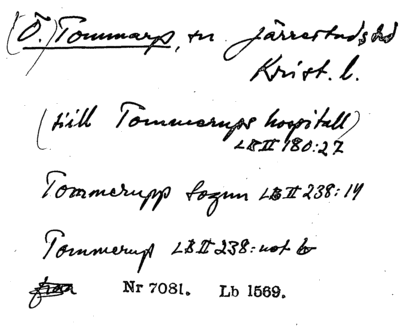 (Ö.) Tommarp, sn Järrestads hd
Krist. l.
(till Tommerups hospitall)
LB II 180:27
Tommerupp Sognn LB II 238:14
Tommerup LB II 238: not b
Nr 7081. Lb 1569.